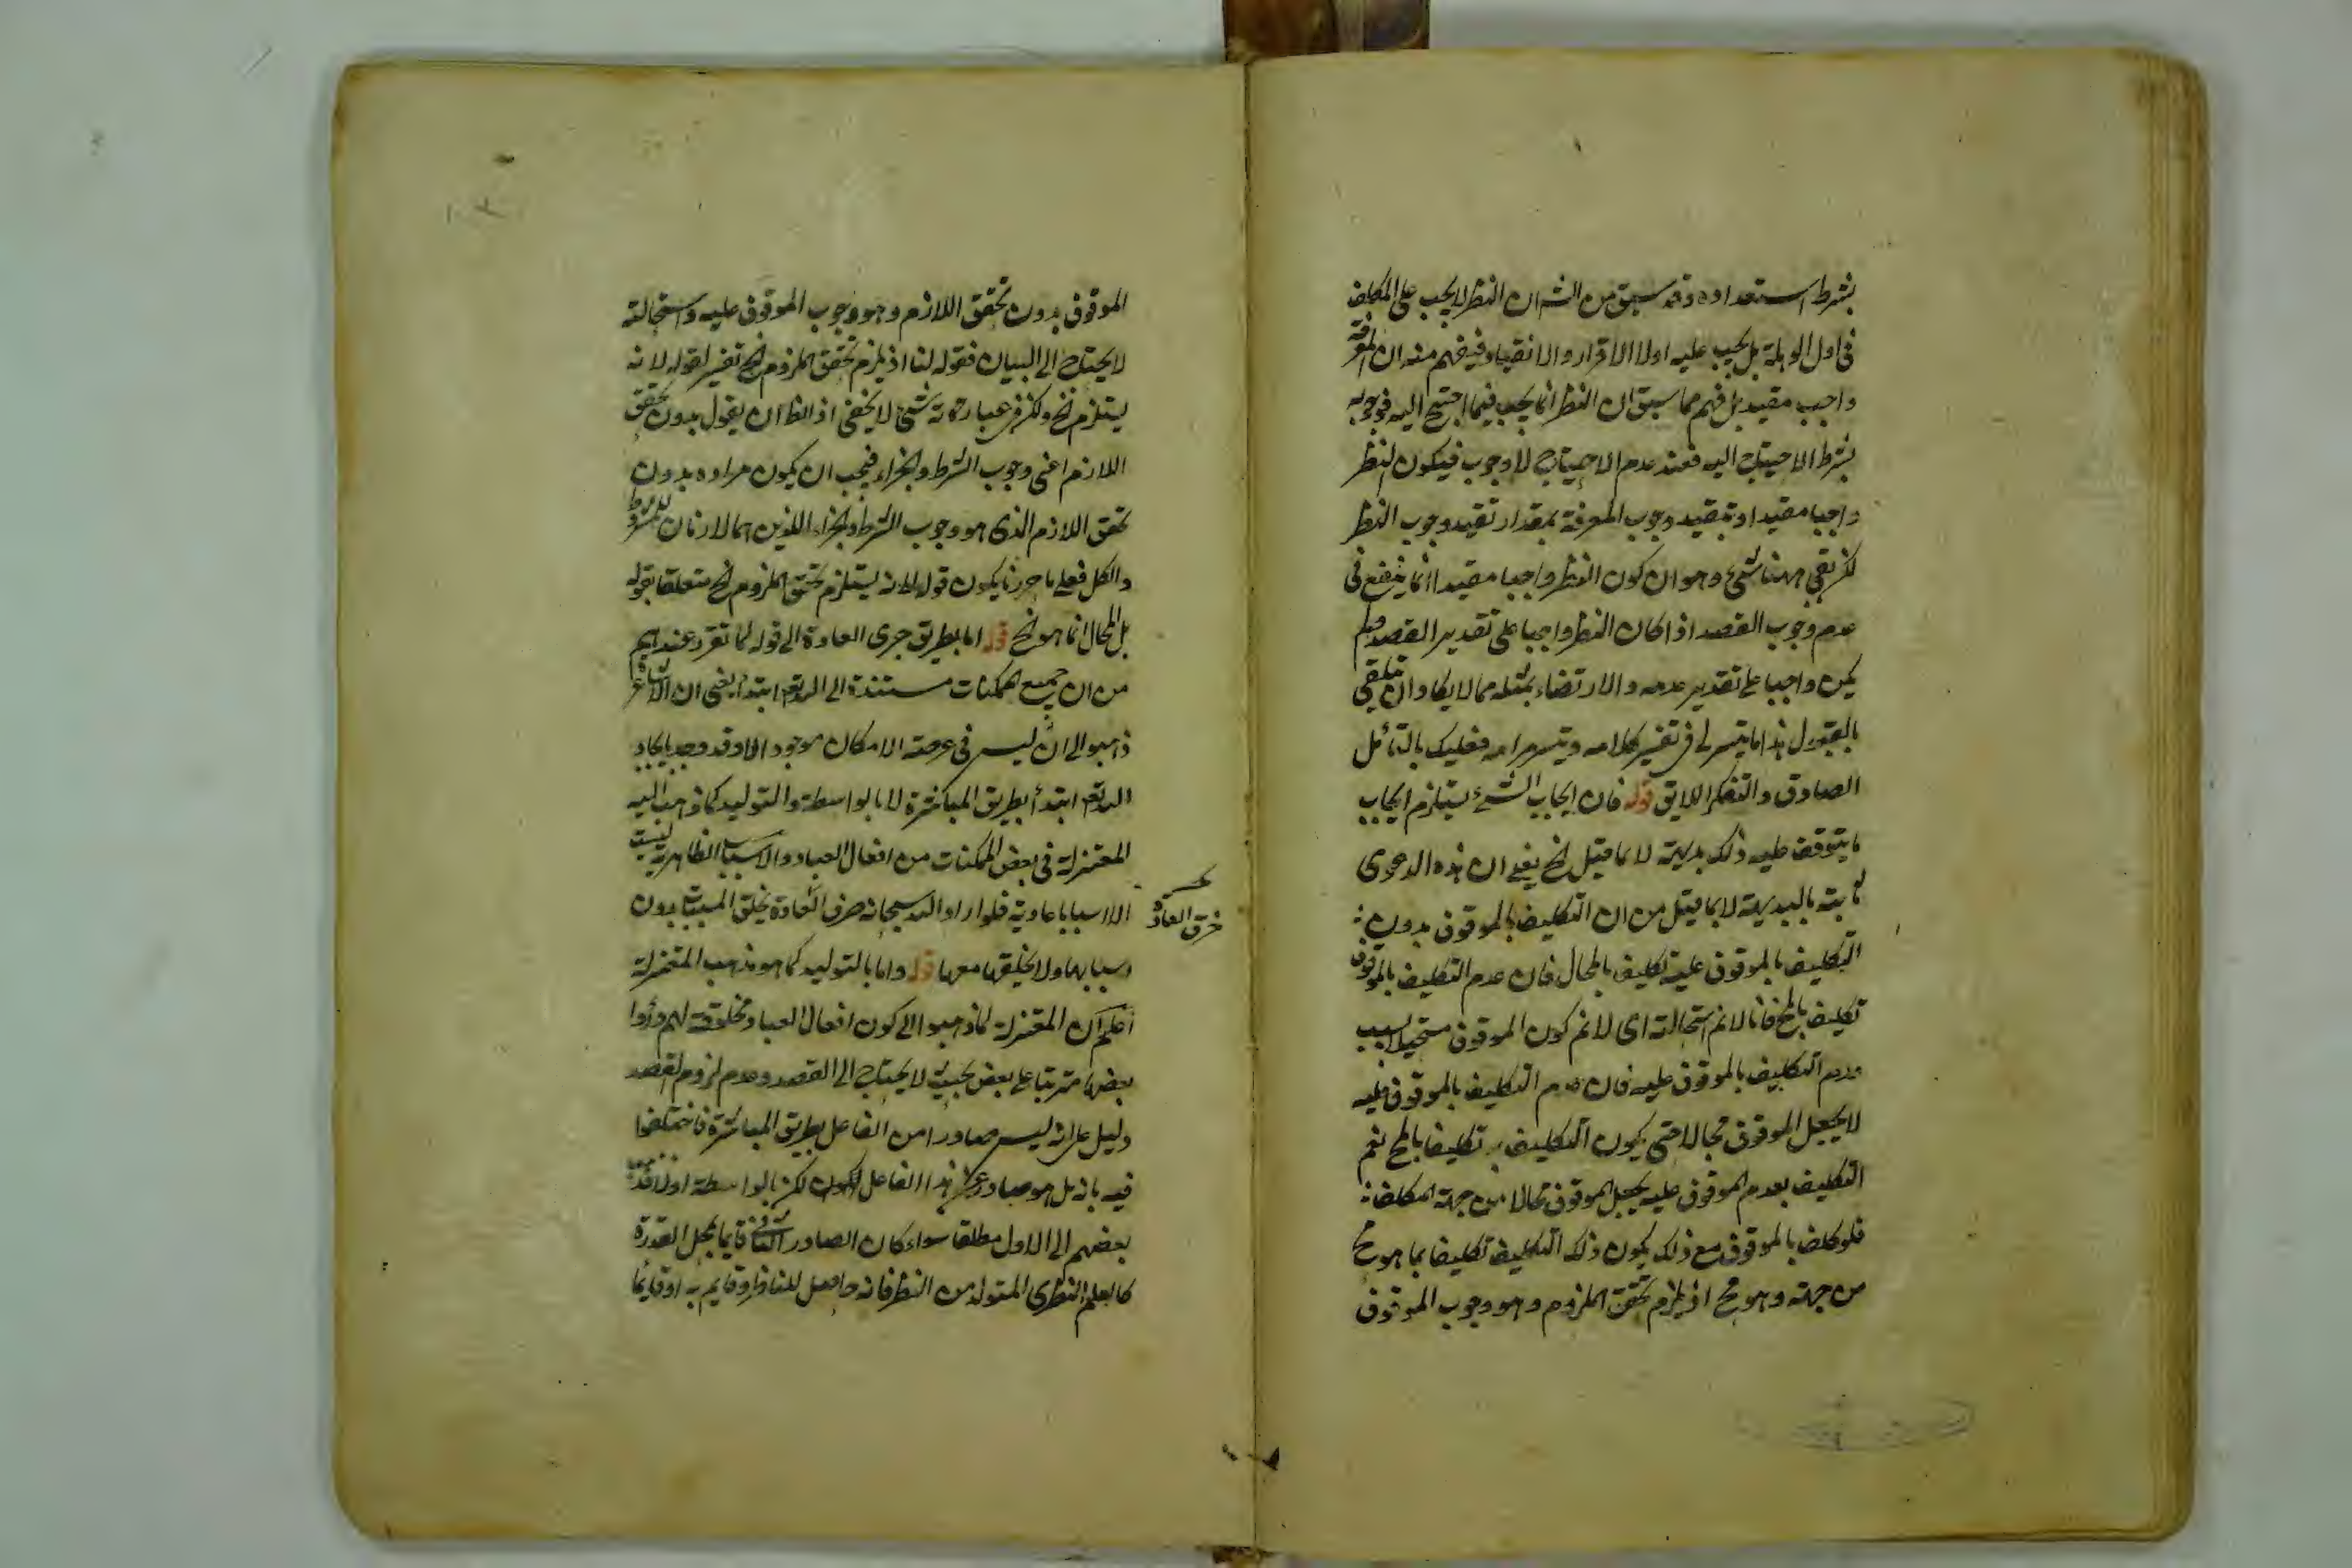 بشرط استعداده وقد سبق من الش ان النظر لا يجب على المكلف
فى اول الوهلة بل يجب عليه اولا الاقرار والانقياد فيفهم منه ان المعرفة
واجب مقيد بل فهم مما سبق ان النظر انما يجب فيما احتيج اليه فوجوبه
بشرط الاحتياج اليه فعند عدم الاحتياج لا وجوب فيكون النظر
واجبا مقيدا وتقييد وجوب المعرفة بمقدار تقييد وجوب النظر
لكن بقى ههنا شئ وهو ان كون النظر واجبا مقيدا انما ينفع فى
عدم وجوب القصد اذا كان النظر واجبا على تقدير القصد ولم
يكن واجبا على تقدير عدمه والارتضاء بمثله مما لا يكاد ان يتلقى
بالقبول هذا ما تيسر لى فى تفسير كلامه وتيسر مرامه فعليك بالتأمل
الصادق والتفكر اللايق قوله فان ايجاب الشئ يستلزم ايجاب
ما يتوقف عليه ذلك بديهة لا لما قيل الخ يعنى ان هذه الدعوى
ثابتة بالبديهة لا بما قيل من ان التكليف بالموقوف بدون
التكليف بالموقوف عليه تكليف بالمحال فان عدم التكليف بالموقوف
تكليف بالمح فانا لا نم استحالته اى لا نم كون الموقوف مستحيلا بسبب
عدم التكليف بالموقوف عليه فان عدم التكليف بالموقوف عليه
لا يجعل الموقوف محالا حتى يكون التكليف به تكليفا بالمح نعم
التكليف بعدم الموقوف عليه يجعل الموقوف محالا من جهة المكلف
فلو كلف بالموقوف مع ذلك يكون ذلك التكليف تكليفا بما هو مح
من جهته وهو مح اذ يلزم تحقق الملزوم وهو وجوب الموقوف
الموقوف بدون تحقق اللازم وهو وجوب الموقوف عليه واستحالته
لا يحتاج الى البيان فقوله لنا اذ يلزم تحقق الملزوم الخ تفسير لقوله لانه
يستلزم الخ ولكن فى عبارته شئ لا يخفى اذ الظ ان يقول بدون تحقق
اللازم اعنى وجوب الشرط والجزاء فيجب ان يكون مراده بدون
تحقق اللازم الذى هو وجوب الشرط والجزاء اللذين هما لازمان للمشروط
والكل فعلى ما حررنا يكون قوله لانه يستلزم تحقق الملزوم الخ متعلقا بقوله
بل المحال انما هو الخ قوله اما بطريق جرى العادة الى قوله لما تقرر عندهم
من ان جميع الممكنات مستندة الى الله تع ابتداء يعنى ان الاشاعرة
ذهبوا الى ان ليس فى عرصة الامكان موجود الا وقد وجد بايجاد
الله تع ابتداء بطريق المباشرة لا بالواسطة والتوليد كما ذهب اليه
المعتزلة فى بعض الممكنات من افعال العباد والاسباب الظاهرية ليست
الا اسبابا عادية فلو اراد الله سبحانه خرق العادة يخلق المسببات بدون
خرق العادة
اسبابها ولا يخلقها معها قوله واما بالتوليد كما هو مذهب المعتزلة
اعلم ان المعتزلة لما ذهبوا الى كون افعال العباد مخلوقة لهم ورأوا
بعضها مترتبا على بعض بحيث لا يحتاج الى القصد وعدم لزوم القصد
دليل على انه ليس صادرا من الفاعل بطريق المباشرة فاختلفوا
فيه بانه بل هو صادر عن هذا الفاعل لكن بالواسطة اولا فذهب
بعضهم الى الاول مطلقا سواء كان الصادر الثانى قايما بمحل القدرة
كالعلم النظرى المتولد من النظر فانه حاصل للناظر وقايم به او قايما